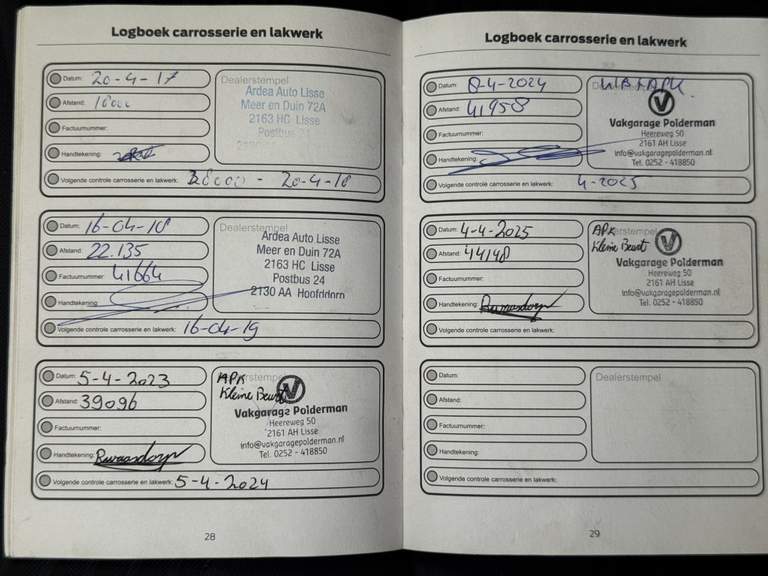 Logboek carrosserie en lakwerk
Datum: 20-4-17
Afstand:
Factuurnummer:
Handtekening:
Volgende controle carrosserie en lakwerk: 20-4-18
Dealerstempel
Ardea Auto Lisse
Meer en Duin 72A
2163 HC Lisse
Datum: 16-04-18
Afstand: 22.135
Factuurnummer: 41664
Handtekening:
Volgende controle carrosserie en lakwerk: 16-04-19
Dealerstempel
Ardea Auto Lisse
Meer en Duin 72A
2163 HC Lisse
Postbus 24
2130 AA Hoofddorp
Datum: 5-4-2023
Afstand: 39096
Factuurnummer:
Handtekening:
Volgende controle carrosserie en lakwerk: 5-4-2024
Dealerstempel
APK
Kleine Beurt
Vakgarage Polderman
Heereweg 50
2161 AH Lisse
info@vakgaragepolderman.nl
Tel. 0252 - 418850
28
Logboek carrosserie en lakwerk
Datum: 8-4-2024
Afstand: 41958
Factuurnummer:
Handtekening:
Volgende controle carrosserie en lakwerk: 4-2025
Vakgarage Polderman
Heereweg 50
2161 AH Lisse
info@vakgaragepolderman.nl
Tel. 0252 - 418850
Datum: 4-4-2025
Afstand: 44148
Factuurnummer:
Handtekening:
Volgende controle carrosserie en lakwerk:
Dealerstempel
APK
Kleine Beurt
Vakgarage Polderman
Heereweg 50
2161 AH Lisse
info@vakgaragepolderman.nl
Tel. 0252 - 418850
Datum:
Afstand:
Factuurnummer:
Handtekening:
Volgende controle carrosserie en lakwerk:
Dealerstempel
29